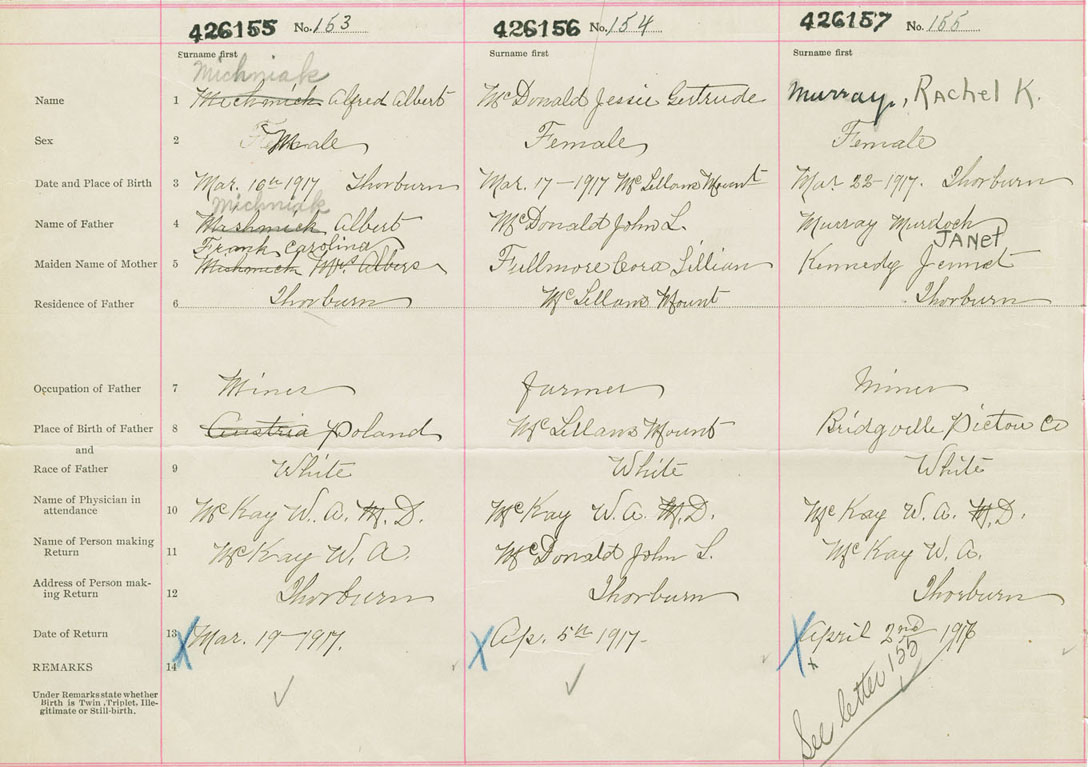 426155 No. 153 426156 No. 154 426157 No. 155
Surname first Surname first Surname first
Michniak
Name 1 Michnick Alfred Albert McDonald Jessie Gertrude Murray, Rachel K.
Sex 2 Male Female Female
Date and Place of Birth 3 Mar. 10th 1917 Thorburn Mar. 17-1917 McLellans Mount Mar. 22-1917. Thorburn
Michniak
Name of Father 4 Albert McDonald John L. Murray Murdoch
Frank Carolina JANET
Maiden Name of Mother 5 Mrs Albers Fullmore Cora Lillian Kennedy Jennet
Residence of Father 6 Thorburn McLellans Mount Thorburn
Occupation of Father 7 Miner farmer Miner
Place of Birth of Father 8 Austria Poland McLellans Mount Bridgville Pictou Co
and
Race of Father 9 White White White
Name of Physician in
attendance 10 McKay W. A. M.D. McKay W. A. M.D. McKay W. A. M.D.
Name of Person making
Return 11 McKay W. A. McDonald John L. McKay W. A.
Address of Person mak-
ing Return 12 Thorburn Thorburn Thorburn
Date of Return 13 Mar. 19-1917. Apr. 5th 1917- April 2nd
REMARKS 14
Under Remarks state whether
Birth is Twin, Triplet, Ille-
gitimate or Still-birth.
See letter 155